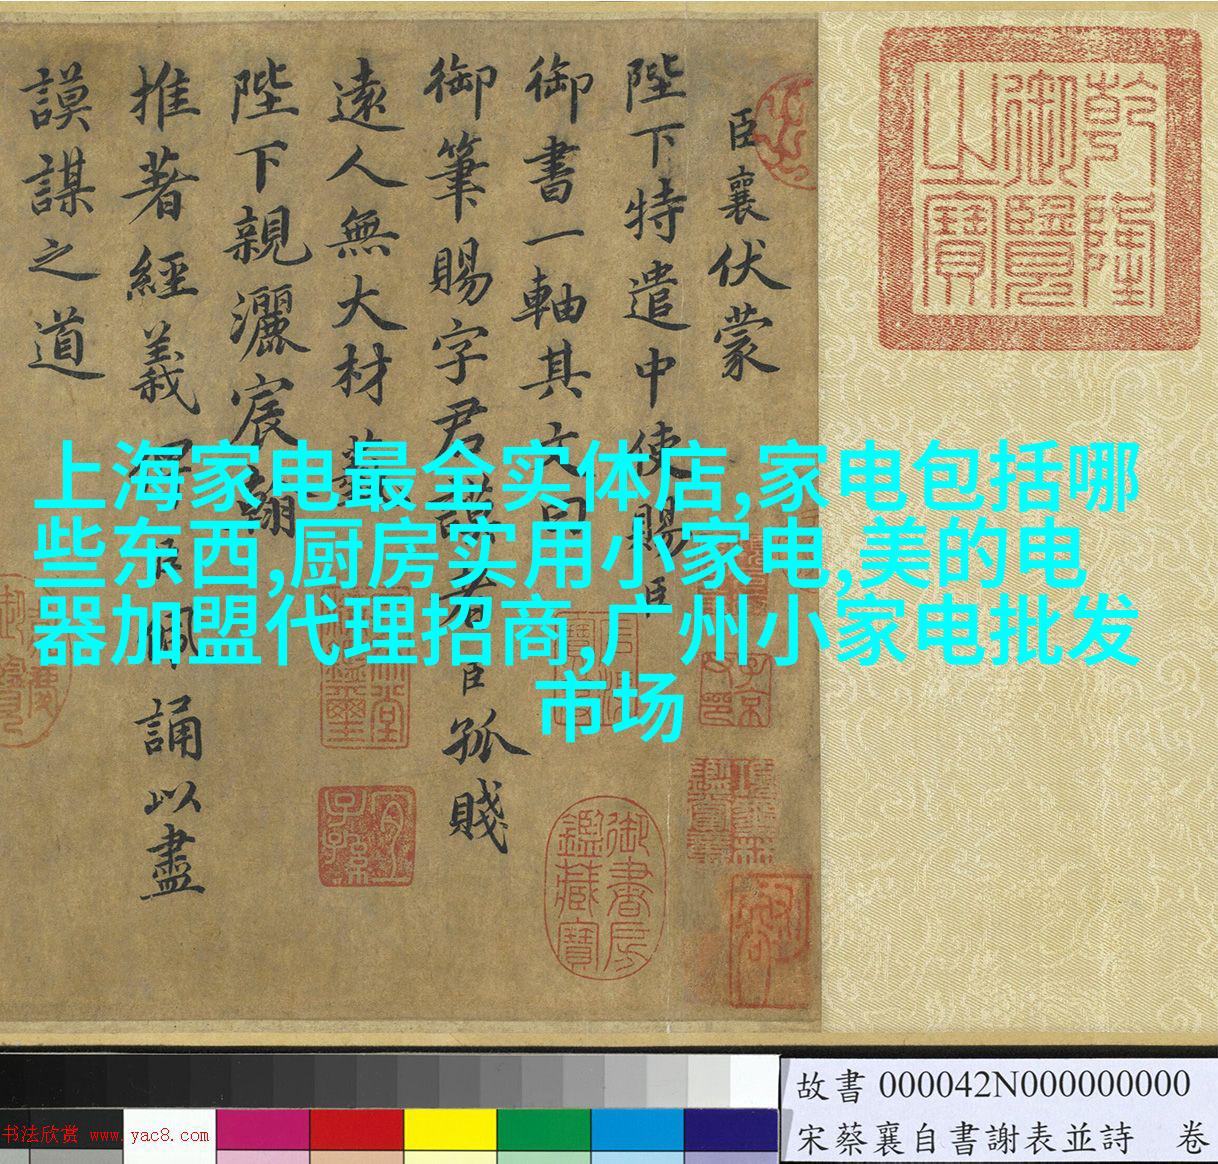 臣襄伏蒙
陛下特遣中使賜臣
御書一軸其文曰
御筆賜字君謨者臣孤賤
遠人無大材藝
陛下親灑宸翰
推著經義
臣佩誦以盡
謨謀之道
乾隆
御覽
之寶
御書房
鑑藏寶
上海家电最全实体店,家电包括哪
些东西,厨房实用小家电,美的电
器加盟代理招商,广州小家电批发
市场
故書 000042N000000000
宋蔡襄自書謝表並詩 卷
书法欣赏 www.yac8.com